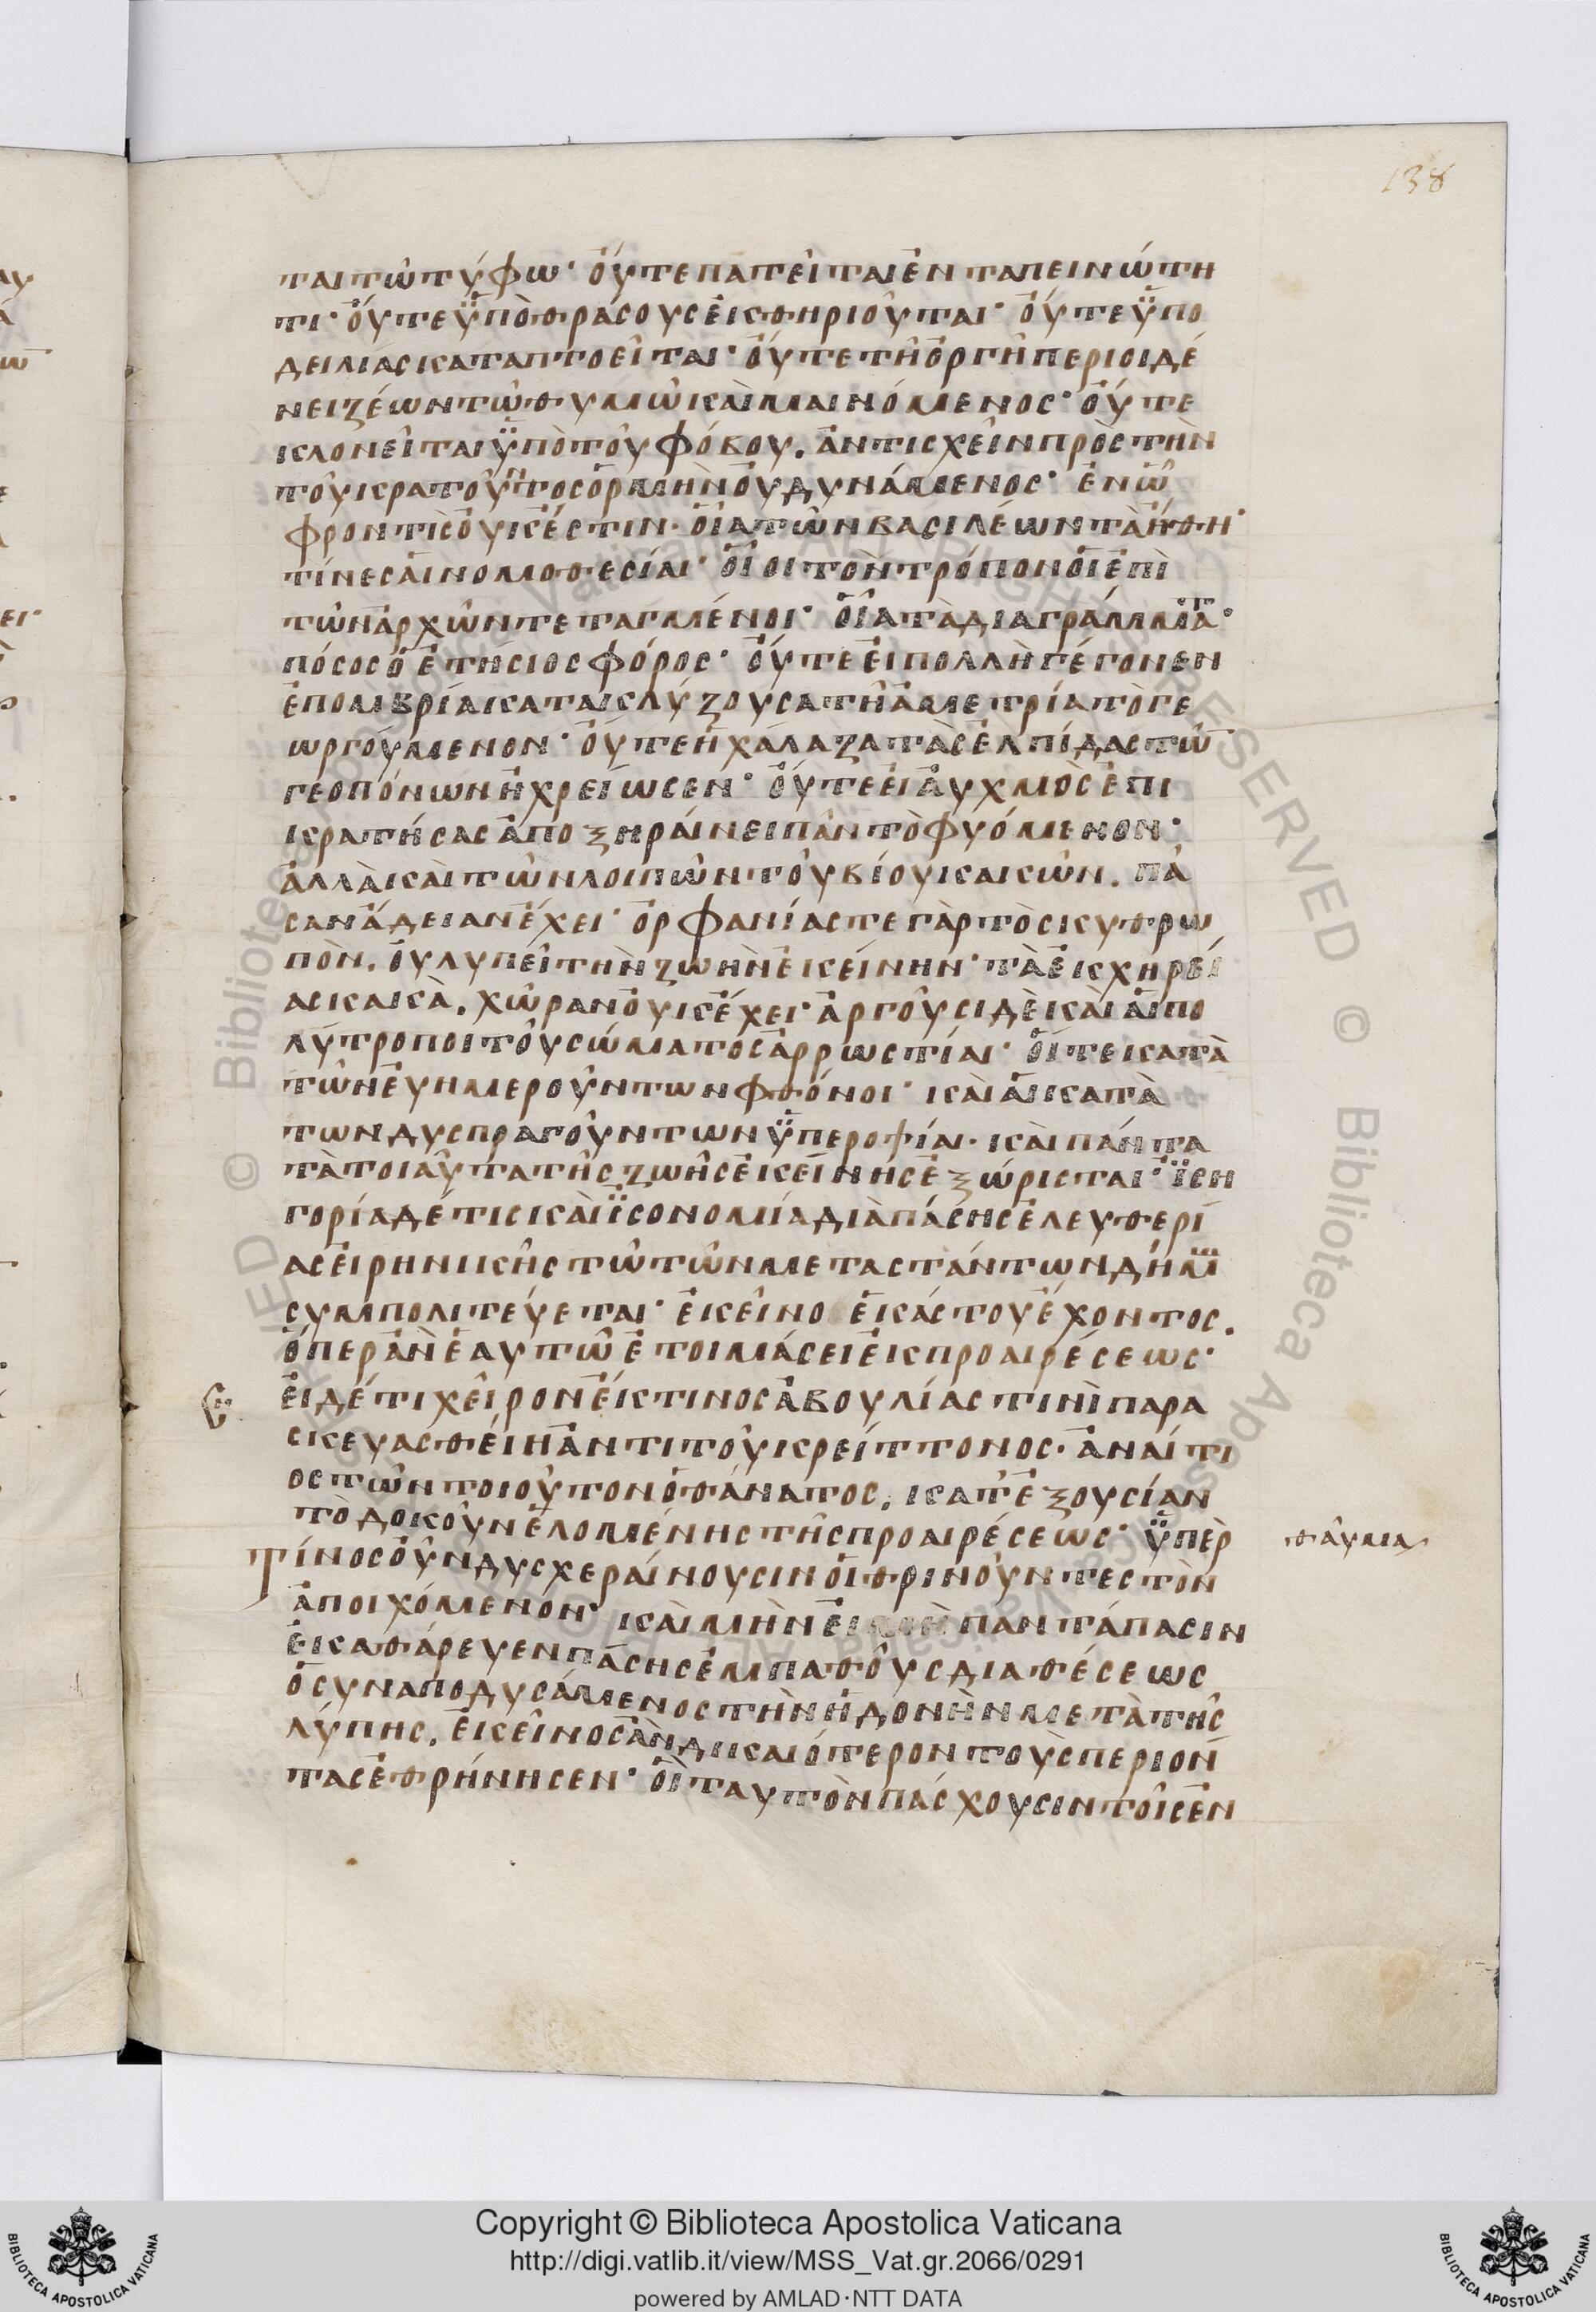 138
ται τῶ τύφω· οὔτε πατεῖται ἐν ταπεινώτη
τι· οὔτε ϋπὸ θράσους ἐκθηριοῦται· οὔτε ϋπο
δειλίας καταπτοεῖται· οὔτε τῆ ὀργῆ περιοιδέ
νει ζέων τῶ θυμῶ καὶ μαινόμενος· οὔτε
κλονεῖται ϋπὸ τοῦ φόβου. ἀντισχεῖν πρὸς τὴν
τοῦ κρατοῦντος ὁρμὴν οὐ δυνάμενος· ἐν ὧ
φροντὶς οὐκ ἔστιν· οἷα τῶν βασιλέων τὰ ἤθη·
τίνες αἱ νομοθεσίαι· οἷοι τὸν τρόπον οἱ ἐπὶ
τῶν ἀρχῶν τεταγμένοι· οἷα τὰ διαγράμματα·
πόσος ὁ ἐτήσιος φόρος· οὔτε εἰ πολλὴ γέγονεν
ἐπομβρία κατακλύζουσα τῆ ἀμετρία τὸ γε
ωργούμενον· οὔτε ἡ χάλαζα τὰς ἐλπίδας τῶ
γεοπόνων ἠχρείωσεν· οὔτε εἰ αὐχμὸς ἐπι
κρατήσας ἀποξηραίνει πᾶν τὸ φυόμενον·
ἀλλὰ καὶ τῶν λοιπῶν τοῦ βίου κακῶν. πᾶ
σαν ἄδειαν ἔχει· ὀρφανίας τε γὰρ τὸ σκυθρω
πὸν. οὐ λυπεῖ τὴν ζωὴν ἐκείνην· τὰ ἐκ χηρεί
ας κακὰ. χώραν οὐκ ἔχει· ἀργοῦσι δὲ καὶ αἱ πο
λύτροποι τοῦ σώματος ἀρρωστίαι· οἵ τε κατὰ
τῶν εὐημερούντων φθόνοι· καὶ αἱ κατὰ
των δυσπραγούντων ϋπεροψίαι· καὶ πάντα
τὰ τοιαῦτα τῆς ζωῆς ἐκείνης ἐξώρισται· ϊση
γορία δέ τις καὶ ϊσονομία διὰ πάσης ἐλευθερί
ας εἰρηνικῆς τῶ τῶν μεταστάντων δήμω
συμπολιτεύεται· ἐκεῖνο ἑκάστου ἔχοντος.
ὅπερ ἂν ἑαυτῶ ἑτοιμάσει ἐκ προαιρέσεως·
εἰ δέ τι χεῖρον ἔκ τινος ἀβουλίας τινὶ παρα
σκευασθείη ἀντι τοῦ κρείττονος· ἀναίτι
ος τῶν τοιούτον ὁ θάνατος. κατ' ἐξουσίαν
τὸ δοκοῦν ἑλομένης τῆς προαιρέσεως· ϋπὲρ
θαῦμα
τίνος οὖν δυσχεραίνουσιν οἱ θρινοῦντες τὸν
ἀποιχόμενον· καὶ μὴν εἰ μὴ παντάπασιν
ἐκαθάρευεν πάσης ἐμπαθοῦς διαθέσεως
ὁ συναποδυσάμενος τὴν ἡδονὴν μετὰ τῆς
λύπης. ἐκεῖνος ἂν δικαιότερον τοὺς περιόν
τας ἐθρήνησεν· οἳ ταυτὸν πάσχουσιν τοῖς ἐν
Copyright © Biblioteca Apostolica Vaticana
http://digi.vatlib.it/view/MSS_Vat.gr.2066/0291
powered by AMLAD·NTT DATA
BIBLIOTECA APOSTOLICA VATICANA
BIBLIOTECA APOSTOLICA VATICANA